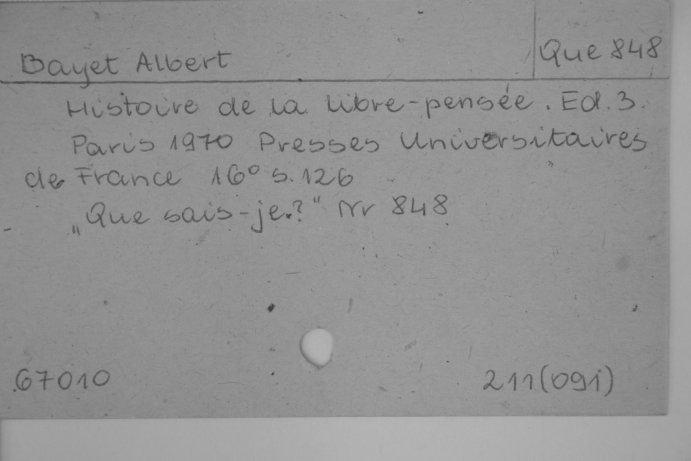 Bayet Albert
Que 848
Histoire de la libre-pensée. Ed. 3.
Paris 1970 Presses Universitaires
de France 16° s. 126
„Que sais-je?" Nr 848
67010
211(091)